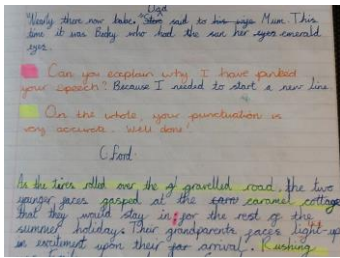 Dad
"Nearly there now babe." said to Mum. This
time it was Becky who had the her eyes emerald
eyes.
Can you explain why I have pinked
your speech? Because I needed to start a new line.
On the whole, your punctuation is
very accurate. Well done!
C.Ford
As the tires rolled over the gravelled road, the two
younger faces gasped at the caramel cottage
that they would stay in for the rest of the
summer holidays. Their grandparents faces light-up
in excitement upon their arrival. Rushing